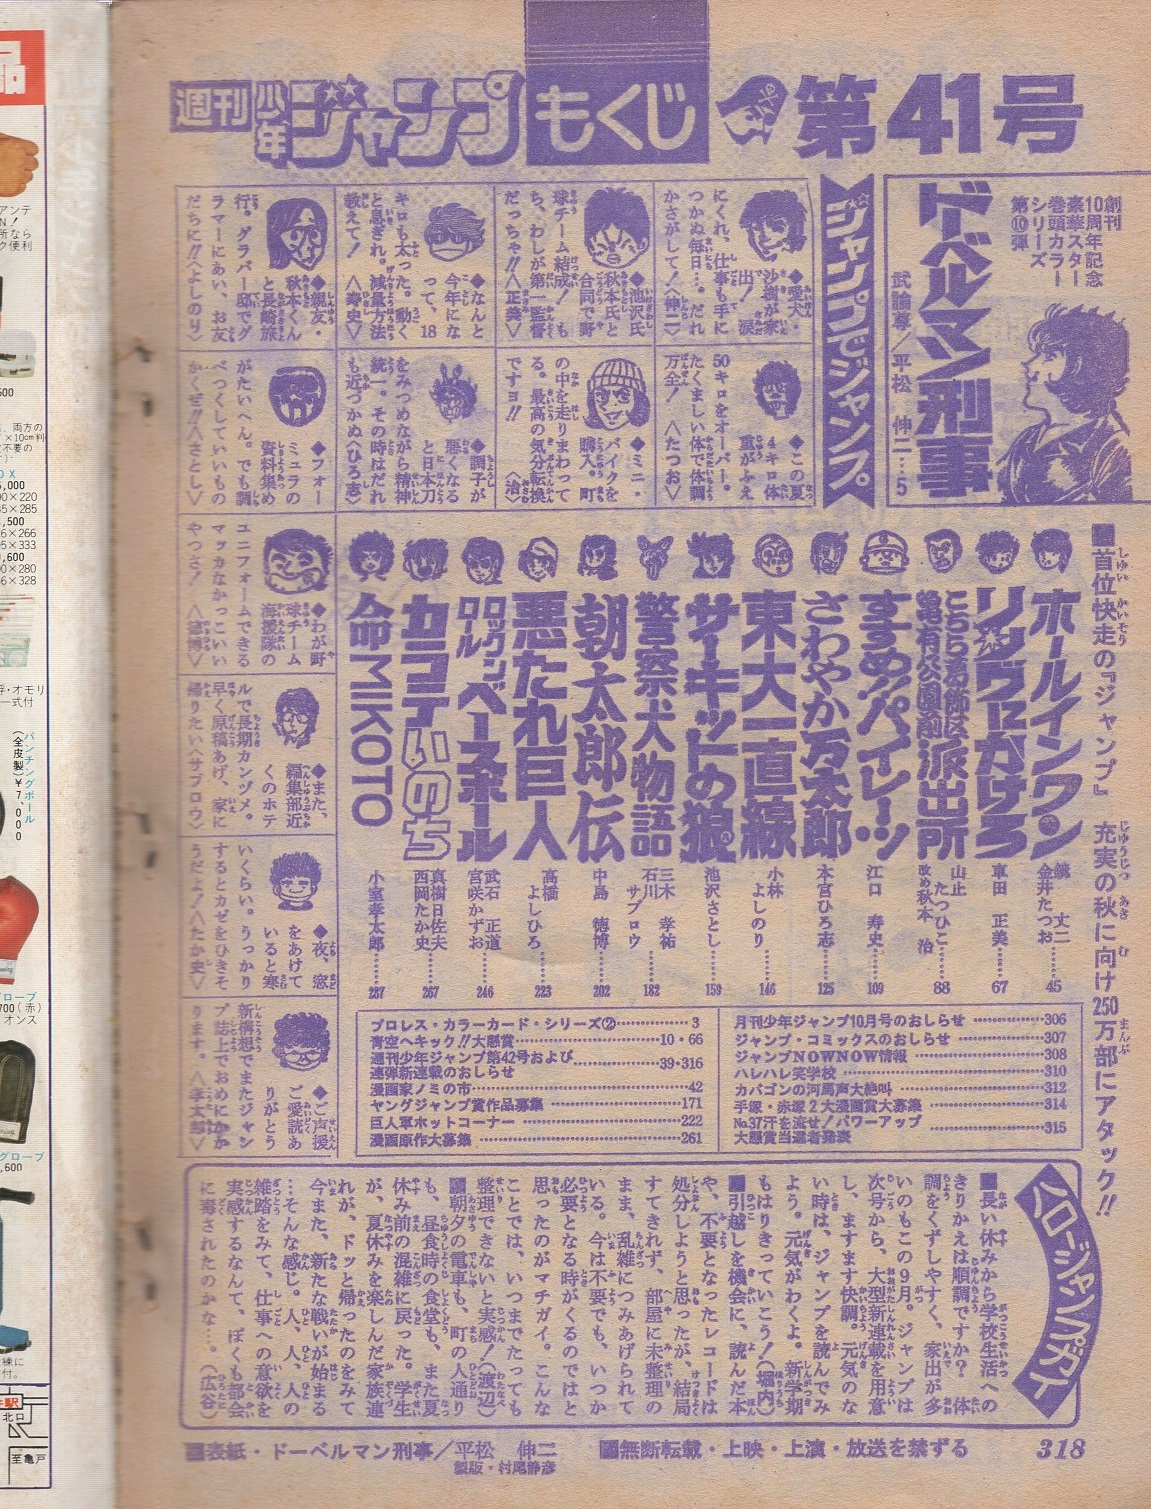 週刊少年ジャンプ もくじ 第41号
創刊
10周年記念
豪華スター
巻頭カラー
シリーズ
第⑩弾
ドーベルマン刑事
武論尊／平松 伸二…5
ジャンプでジャンプ
◆愛犬・
沙樹が家
出！ 涙
にくれ、仕事も手に
つかぬ毎日…。だれ
かさがして！〈伸二〉
◆池沢氏
秋本氏と
合同で野
球チーム結成！ も
ち、わしが第一監督
だっちゃ!!〈正美〉
◆なんと
今年にな
って、18
キロも太った。動く
と息ぎれ。減量方法
教えて！ 〈寿史〉
◆親友・
秋本くん
と長崎旅
行。グラバー邸でグ
ラマーにあい、お友
だちに!!〈よしのり〉
◆この夏
4キロ体
重がふえ
50キロをオーバー。
たくましい体で体調
万全！ 〈たつお〉
◆ミニ・
バイクを
購入。町
の中を走りまわって
る。最高の気分転換
ですヨ!! 〈治〉
◆調子が
悪くなる
と日本刀
をみつめながら精神
統一。その時はだれ
も近づかぬ〈ひろ志〉
◆フォー
ミュラの
資料集め
がたいへん。でも調
べつくしていいもの
かくぜ!!〈さとし〉
◆わが野
球チーム
海援隊の
ユニフォームできる
マッカなかっこいい
やつさ！ 〈徳博〉
◆また、
編集部近
くのホテ
ルで長期カンヅメ。
早く原稿あげ、家に
帰りたい〈サブロウ〉
◆夜、窓
をあけて
いると寒
いくらい。うっかり
するとカゼをひきそ
うだよ！〈たか史〉
◆ご声援
ご愛読あ
りがとう
新構想でまたジャン
プ誌上でおめにかか
ります。〈孝太郎〉
■首位快走の『ジャンプ』 充実の秋に向け250万部にアタック!!
ホールインワン 鏡 丈二 金井たつお……45
リングにかけろ 車田 正美……67
こちら葛飾区亀有公園前派出所 山止 たつひこ 改め秋本 治……88
すすめ!!パイレーツ 江口 寿史……109
さわやか万太郎 本宮ひろ志……125
東大一直線 小林 よしのり……146
サーキットの狼 池沢さとし……159
警察犬物語 三木 孝祐 石川 サブロウ……182
朝太郎伝 中島 徳博……202
悪たれ巨人 高橋 よしひろ……223
ロックンロールベースボール 武石 正道 宮咲かずお……246
カコティいのち 真樹日佐夫 西岡たか史……267
命MIKOTO 小室孝太郎……287
プロレス・カラーカード・シリーズ②……3
青空へキック!!大懸賞……10・66
週刊少年ジャンプ第42号および
連弾新連載のおしらせ……39・316
漫画家ノミの市……42
ヤングジャンプ賞作品募集……171
巨人軍ホットコーナー……222
漫画原作大募集……261
月刊少年ジャンプ10月号のおしらせ……306
ジャンプ・コミックスのおしらせ……307
ジャンプNOWNOW情報……308
ハレハレ笑学校……310
カバゴンの河馬声大絶叫……312
手塚・赤塚2大漫画賞大募集……314
No.37汗を流せ！パワーアップ
大懸賞当選者発表……315
ハロージャンプガイ
■長い休みから学校生活への
きりかえは順調ですか？ 体
調をくずしやすく、家出が多
いのもこの9月。ジャンプは
次号から、大型新連載を用意
し、ますます快調。元気のな
い時は、ジャンプを読んでみ
よう。元気がわくよ。新学期
もはりきっていこう！（堀内）
■引越しを機会に、読んだ本
や、不要となったレコードは
処分しようと思ったが、結局
すてきれず、部屋に未整理の
まま、乱雑につみあげられて
いる。今は不要でも、いつか
必要となる時がくるのではと
思ったのがマチガイ。こんな
ことでは、いつまでたっても
整理できないと実感！（渡辺）
■朝夕の電車も、町の人通り
も、昼食時の食堂も、また夏
休み前の混雑に戻った。学生
が、夏休みを楽しんだ家族連
れが、ドッと帰ったのをみて
今また、新たな戦いが始まる
…そんな感じ。人、人、人の
雑踏をみて、仕事への意欲を
実感するなんて、ぼくも都会
に毒されたのかな…。（広谷）
■表紙・ドーベルマン刑事／平松 伸二
製版・村尾静彦
■無断転載・上映・上演・放送を禁ずる
318
パンチングボール
（全皮製）¥7,000
グローブ
700(赤)
オンス
グローブ
,600
北口
至亀戸